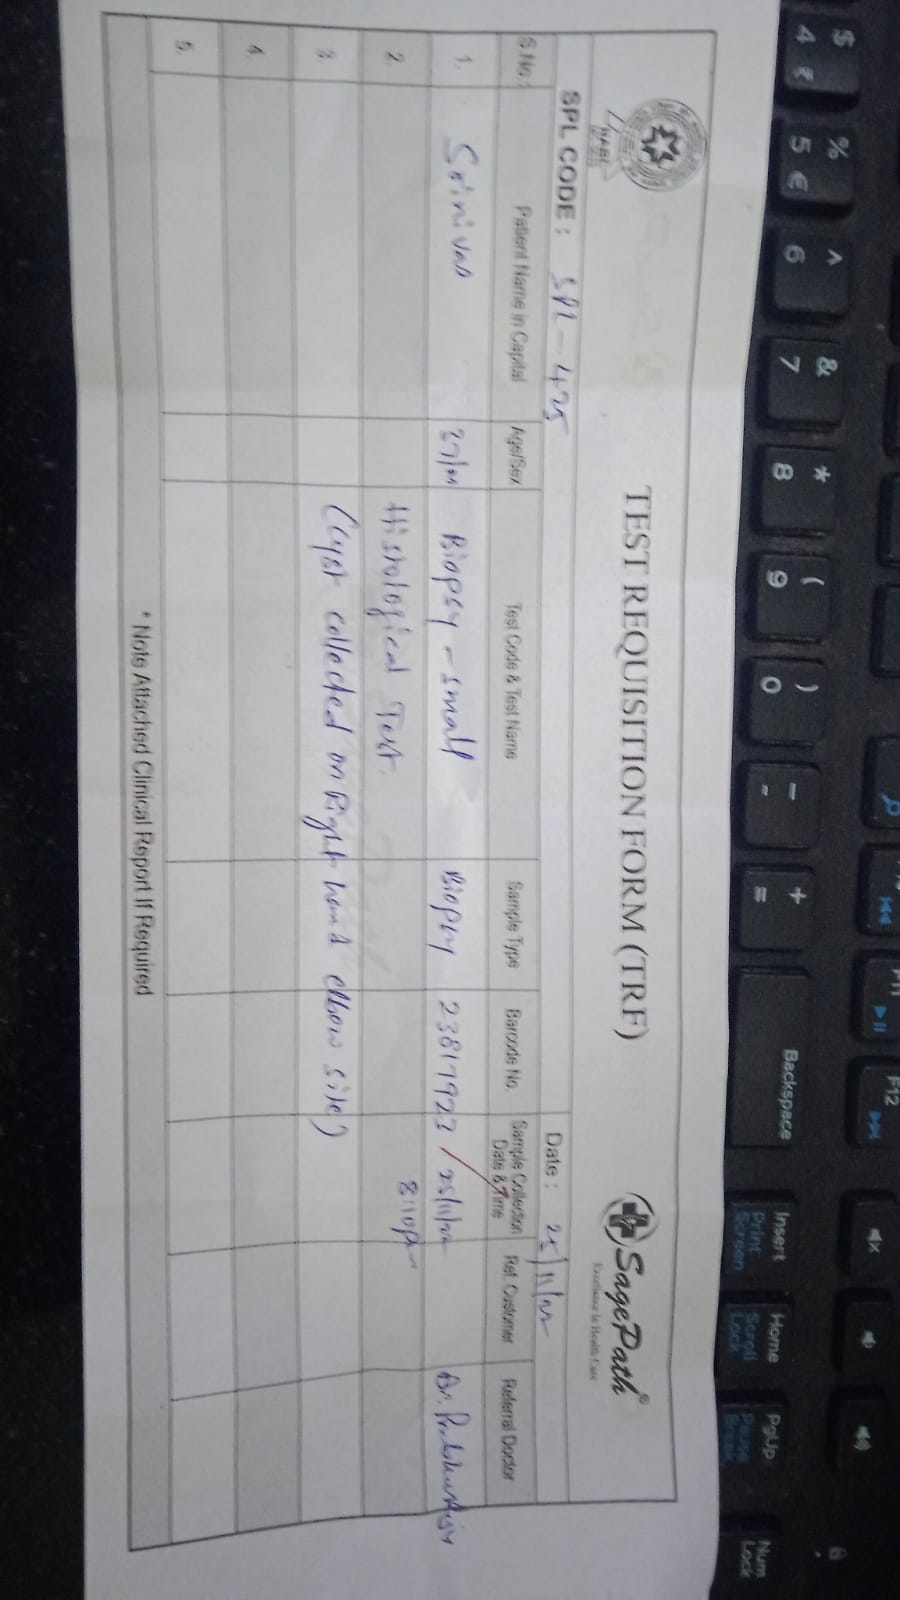 NABL
TEST REQUISITION FORM (TRF)
SagePath®
Excellence in Health Care
SPL CODE : SPL - 425
Date : 25/11/22
S.No. Patient Name in Capital Age/Sex Test Code & Test Name Sample Type Barcode No. Sample Collection Date & Time Ref. Customer Referral Doctor
1. Srinivas 37/M Biopsy - small Biopsy 23817923 25/11/22
2 Histological Test. 8:10pm
3. (Cyst collected on Right hand elbow site)
4.
5.
* Note Attached Clinical Report If Required
$ 4 ₹
% 5 €
^ 6
& 7
* 8
( 9
) 0
_ -
+ =
Backspace
F12
Insert
Print Screen
Home
Scroll Lock
PgUp
Pause Break
Num Lock